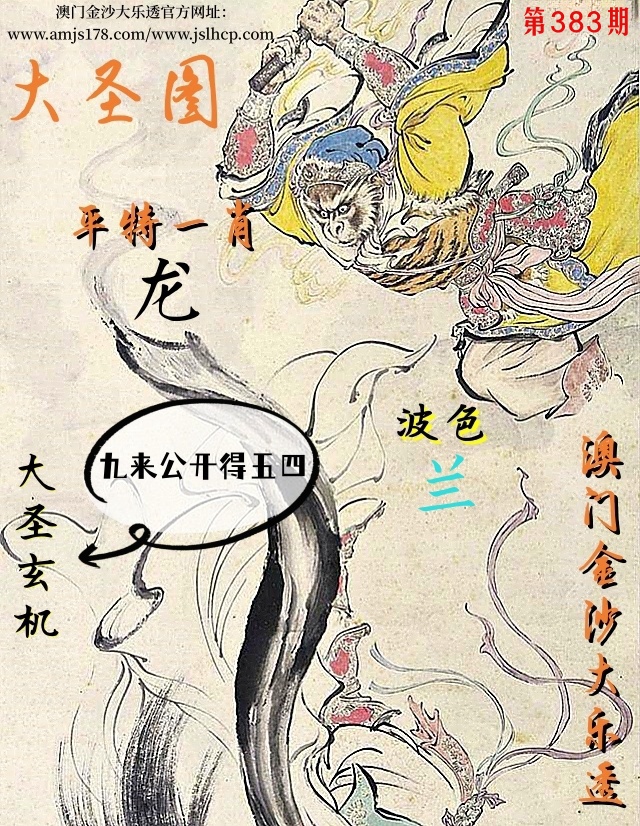 澳门金沙大乐透官方网址：
www.amjs178.com/www.jslhcp.com
第383期
大圣图
平特一肖
龙
波色
兰
九来公开得五四
大圣玄机
澳门金沙大乐透